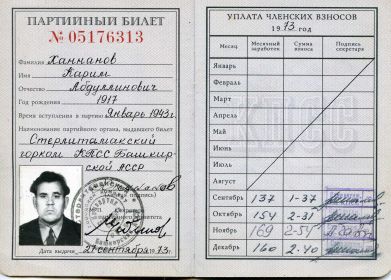 ПАРТИЙНЫЙ БИЛЕТ
№ 05176313
Фамилия Ханнанов
Имя Карим
Отчество Абдуллинович
Год рождения 1917
Время вступления в партию Январь 1943 г.
Наименование партийного органа, выдавшего билет
Стерлитамакский
горком КПСС Башкир-
ской АССР
Дата выдачи 27 сентября 1973 г.
УПЛАТА ЧЛЕНСКИХ ВЗНОСОВ
1973 год
Месяц Месячный заработок Сумма взноса Подпись секретаря
Январь
Февраль
Март
Апрель
Май
Июнь
Июль
Август
Сентябрь 137 1-37
Октябрь 154 2-31
Ноябрь 169 2-54
Декабрь 160 2-40
КПСС